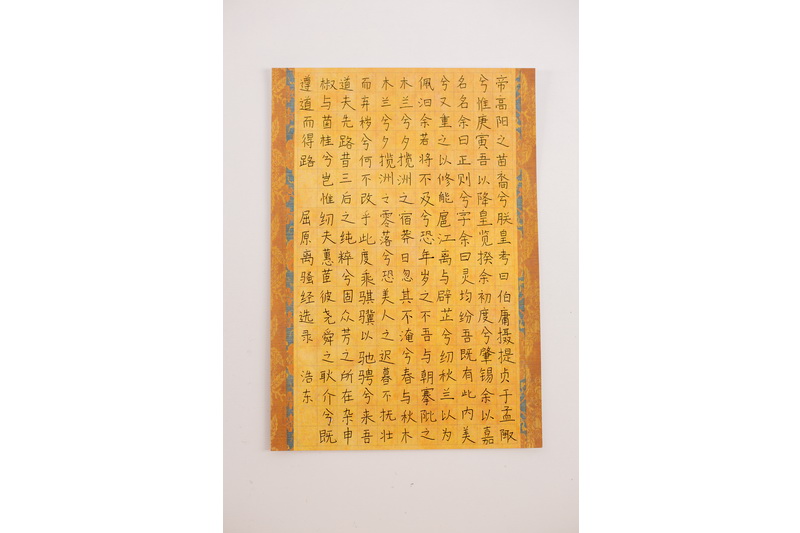 帝高阳之苗裔兮朕皇考曰伯庸摄提贞于孟陬
兮惟庚寅吾以降皇览揆余初度兮肇锡余以嘉
名名余曰正则兮字余曰灵均纷吾既有此内美
兮又重之以修能扈江离与辟芷兮纫秋兰以为
佩汩余若将不及兮恐年岁之不吾与朝搴阰之
木兰兮夕揽洲之宿莽日忽其不淹兮春与秋木
木兰兮夕揽洲之零落兮恐美人之迟暮不抚壮
而弃秽兮何不改乎此度乘骐骥以驰骋兮来吾
道夫先路昔三后之纯粹兮固众芳之所在杂申
椒与菌桂兮岂惟纫夫蕙茝彼尧舜之耿介兮既
遵道而得路 屈原离骚经选录 浩东